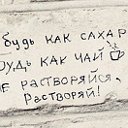 будь как сахар
Будь как чай
не растворяйся,
Растворяй!